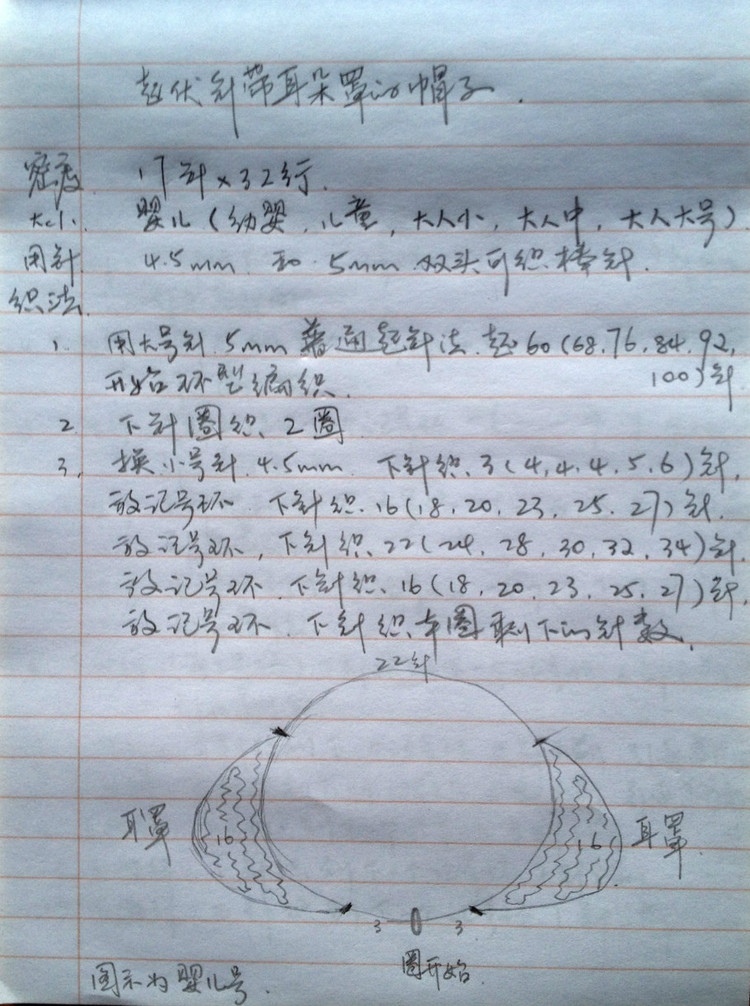 起伏针带耳朵罩的帽子.
密度 17针×32行.
大小. 婴儿(幼婴,儿童,大人小,大人中,大人大号)
用针 4.5mm 和 5mm 双头可织棒针.
织法.
1. 用大号针.5mm 普通起针法.起60(68.76.84.92.
开始环型编织. 100)针
2 下针圈织、2圈
3, 换小号针.4.5mm. 下针织.3(4,4.4.5.6)针,
放记号环. 下针织.16(18.20.23.25.27)针.
放记号环,下针织.22(24.28.30.32.34)针.
放记号环.下针织.16(18.20.23.25.27)针.
放记号环.下针织本圈剩下的针数.
22针
耳罩 16 16 耳罩.
3 3
圈开始.
图示为婴儿号.